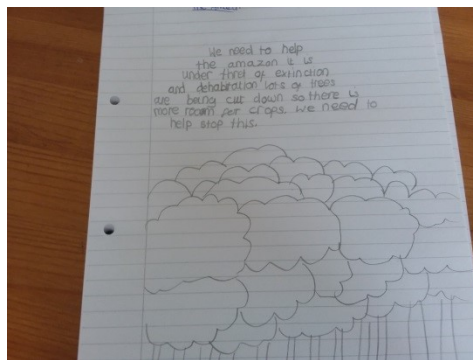 We need to help
the amazon it is
under thret of extinction
and dehabration lots of trees
are being cut down so there is
more room for crops. we need to
help stop this.